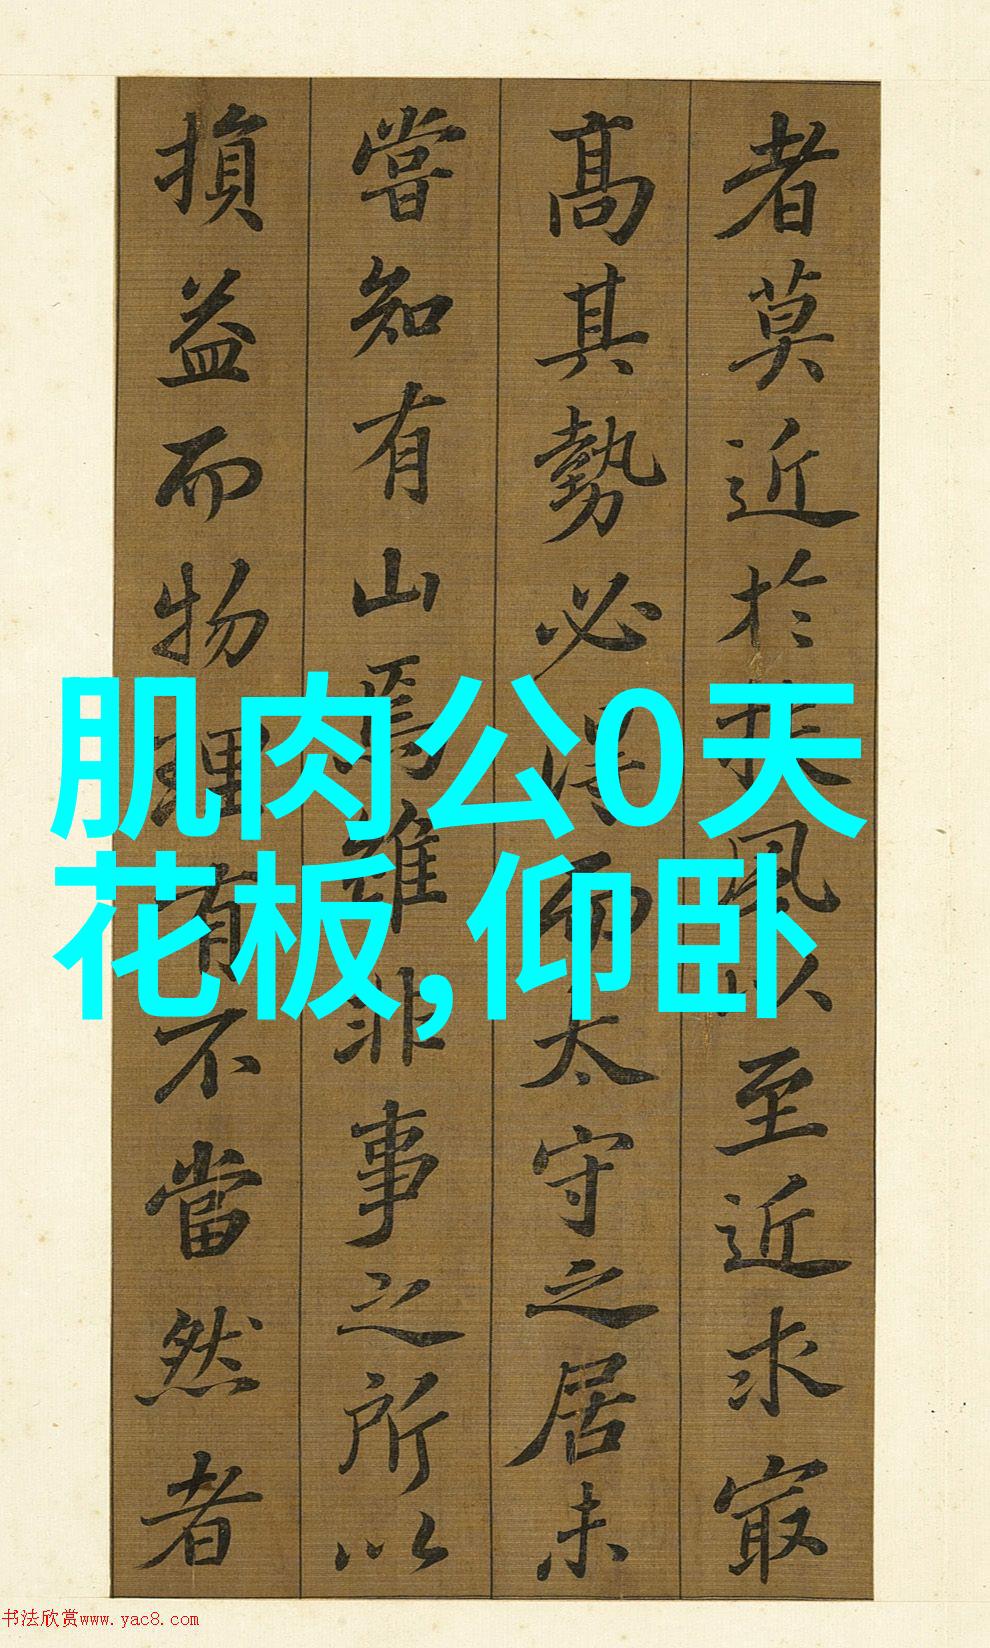 者莫近於扶風以至近求㝡
高其勢必得而太守之居未
嘗知有山焉雖非事之所以
損益而物理有不當然者
肌肉公0天
花板,仰卧
书法欣赏www.yac8.com